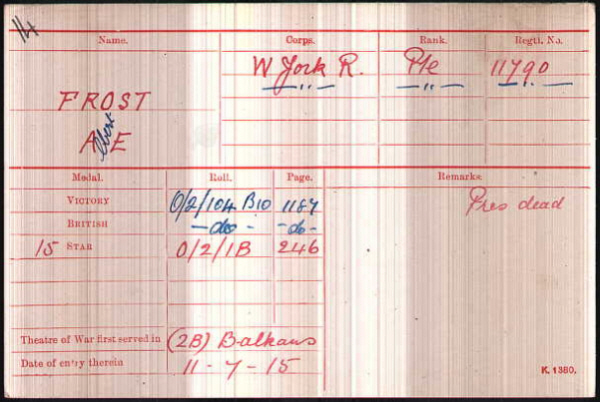 14
Name. Corps. Rank. Regtl. No.
W York R. Pte 11790
FROST — „ — — „ — — „ —
A lbert E
Medal. Roll. Page. Remarks.
VICTORY O/2/104 B10 1187 Pres dead
BRITISH — do — — do —
15 STAR O/2/1B 246
Theatre of War first served in (2B) Balkans
Date of entry therein 11 - 7 - 15
K. 1380.